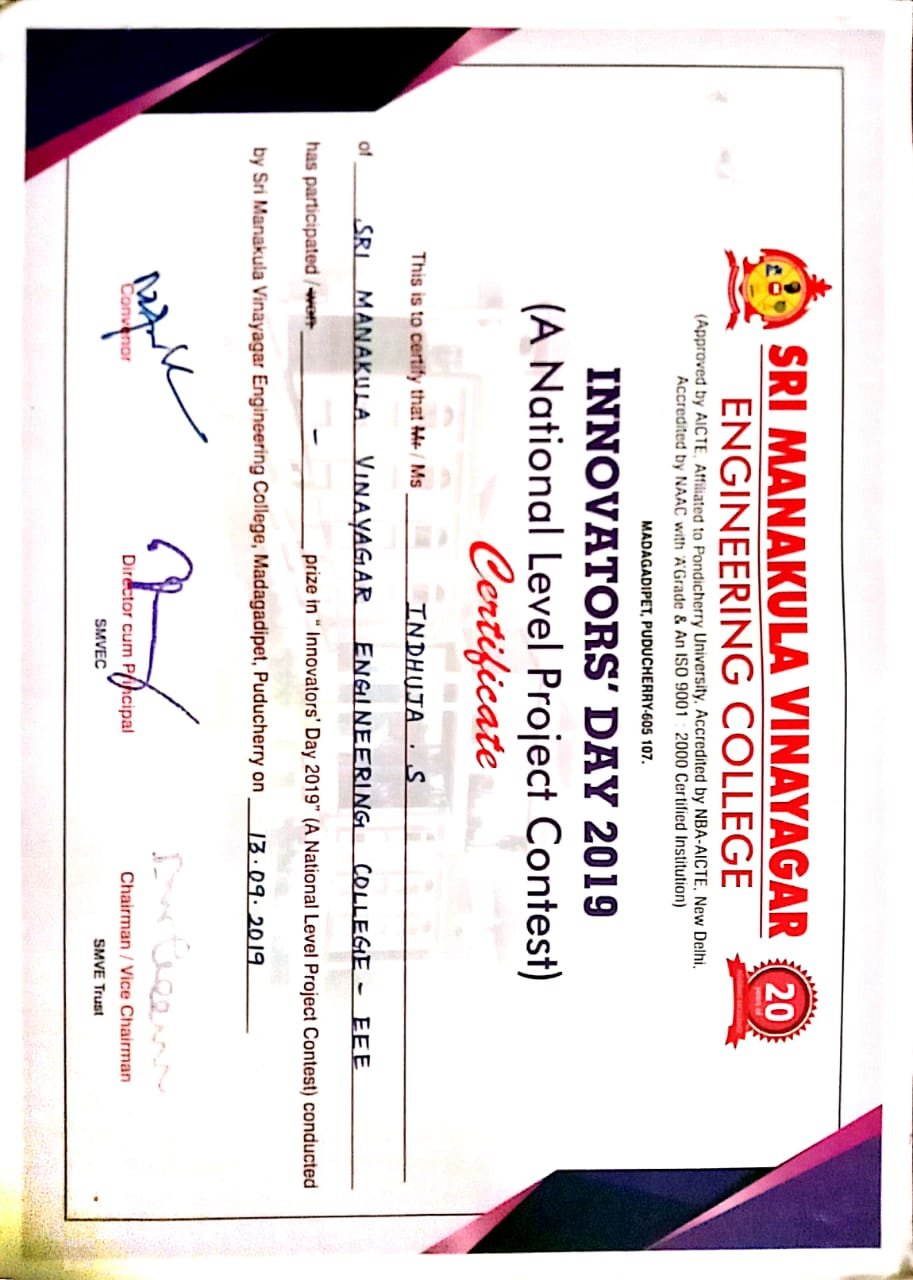 SRI MANAKULA VINAYAGAR
20
years of
ACADEMIC EXCELLENCE
ENGINEERING COLLEGE
(Approved by AICTE, Affiliated to Pondicherry University, Accredited by NBA-AICTE, New Delhi,
Accredited by NAAC with 'A'Grade & An ISO 9001 : 2000 Certified Institution)
MADAGADIPET, PUDUCHERRY-605 107.
INNOVATORS' DAY 2019
(A National Level Project Contest)
Certificate
This is to certify that Mr / Ms INDHUJA . S
of SRI MANAKULA VINAYAGAR ENGINEERING COLLEGE - EEE
has participated / won - prize in " Innovators' Day 2019" (A National Level Project Contest) conducted
by Sri Manakula Vinayagar Engineering College, Madagadipet, Puducherry on 13.09.2019
Convenor
Director cum Principal
SMVEC
Chairman / Vice Chairman
SMVE Trust